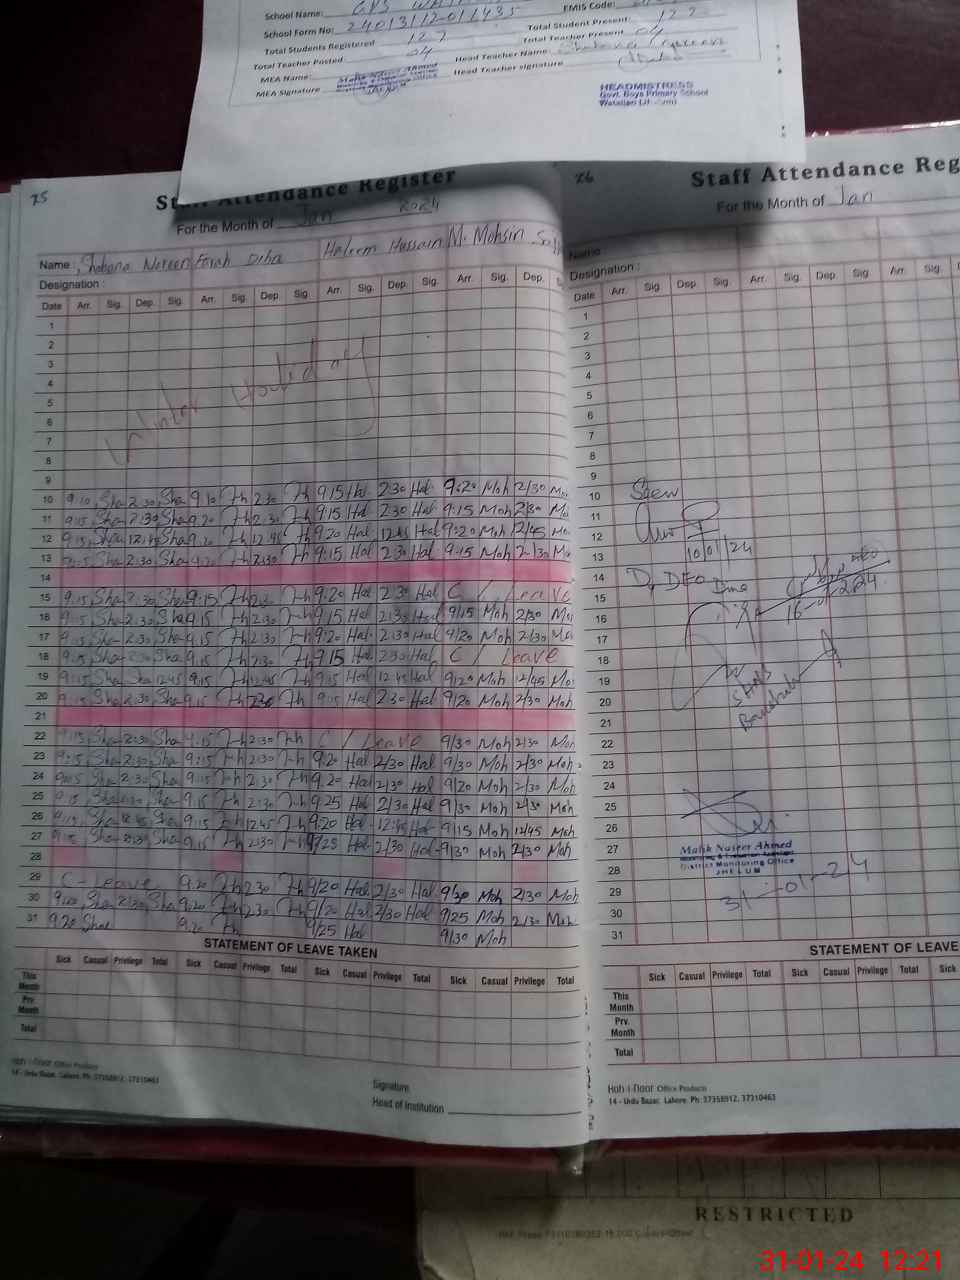 School Name: GPS
EMIS Code:
School Form No: 24013112-011435
Total Students Registered 127
Total Student Present: 127
Total Teacher Posted: 04
Total Teacher Present: 04
MEA Name: Malik Naseer Ahmed
Head Teacher Name: Shabana Noreen
MEA Signature
Head Teacher signature
HEADMISTRESS
Govt. Boys Primary School
25
Staff Attendance Register
For the Month of Jan 2024
Name : Shabana Noreen Farah Diba Haleem Hassain M. Mohsin
Designation :
Date Arr. Sig. Dep. Sig. Arr. Sig. Dep. Sig. Arr. Sig. Dep. Sig. Arr. Sig. Dep.
1
2
3
4
5
6
7
8
Winter Holiday
9
10 9:10 Sha 2:30 Sha 9:10 2:30 9:15 Hal 2:30 Hal 9:20 Moh 2/30
11 9:15 Sha 2:30 Sha 9:20 2:30 9:15 Hal 2:30 Hal 9:15 Moh 2/30
12 9:15 Sha 12:45 Sha 9:20 12:45 9:20 Hal 12:45 Hal 9:20 Moh 12/45
13 9:15 Sha 2:30 Sha 9:20 2:30 9:15 Hal 2:30 Hal 9:15 Moh 2/30
14
15 9:15 Sha 2:30 Sha 9:15 2:30 9:20 Hal 2:30 Hal C / Leave
16 9:15 Sha 2:30 Sha 9:15 2:30 9:15 Hal 2:30 Hal 9/15 Moh 2/30
17 9:15 Sha 2:30 Sha 9:15 2:30 9:20 Hal 2:30 Hal 9/20 Moh 2/30
18 9:15 Sha 2:30 Sha 9:15 2:30 9:15 Hal 2:30 Hal C / Leave
19 9:15 Sha Sha 12:45 9:15 12:45 9:15 Hal 12:45 Hal 9/20 Moh 12/45
20 9:15 Sha 2:30 Sha 9:15 2:30 9:15 Hal 2:30 Hal 9/20 Moh 2/30
21
22 9:15 Sha 2:30 Sha 9:15 2:30 C / Leave 9/30 Moh 2/30 Moh
23 9:15 Sha 2:30 Sha 9:15 2:30 9:20 Hal 2/30 Hal 9/30 Moh 2/30 Moh
24 9:15 Sha 2:30 Sha 9:15 2:30 9:20 Hal 2/30 Hal 9/20 Moh 2/30 Moh
25 9:15 Sha Sha 9:15 2:30 9:25 Hal 2/30 Hal 9/30 Moh 2/30 Moh
26 9:15 Sha 12:45 Sha 9:15 12:45 9:20 Hal 12:45 Hal 9/15 Moh 12/45 Moh
27 9:15 Sha 2:30 Sha 9:15 2:30 9/25 Hal 2/30 Hal 9/30 Moh 2/30 Moh
28
29 C - Leave 9:20 2:30 9/20 Hal 2/30 Hal 9/30 Moh 2/30 Moh
30 9:20 Sha 2:30 Sha 9:20 2:30 9/20 Hal 2/30 Hal 9/25 Moh 2/30 Moh
31 9:20 Sha 9:20 9/25 Hal 9/30 Moh
STATEMENT OF LEAVE TAKEN
Sick Casual Privilege Total Sick Casual Privilege Total Sick Casual Privilege Total Sick Casual Privilege Total
This Month
Prv. Month
Total
Noh-i-Noor Office Products
14 - Urdu Bazar, Lahore. Ph: 37358912, 37310463
Signature
Head of Institution
26
Staff Attendance Reg
For the Month of Jan
Name
Designation :
Date Arr. Sig. Dep. Sig. Arr. Sig. Dep. Sig. Arr. Sig.
1
2
3
4
5
6
7
8
9
10 Seen
11
12
13 10/01/24
14 Dy DEO
15
16
17
18
19
20
21
22
23
24
25
26
27 Malik Naseer Ahmed
District Monitoring Office
28 JHELUM
29 31-01-24
30
31
STATEMENT OF LEAVE
Sick Casual Privilege Total Sick Casual Privilege Total Sick
This Month
Prv. Month
Total
Noh-i-Noor Office Products
14 - Urdu Bazar, Lahore. Ph: 37358912, 37310463
RESTRICTED
31-01-24 12:21